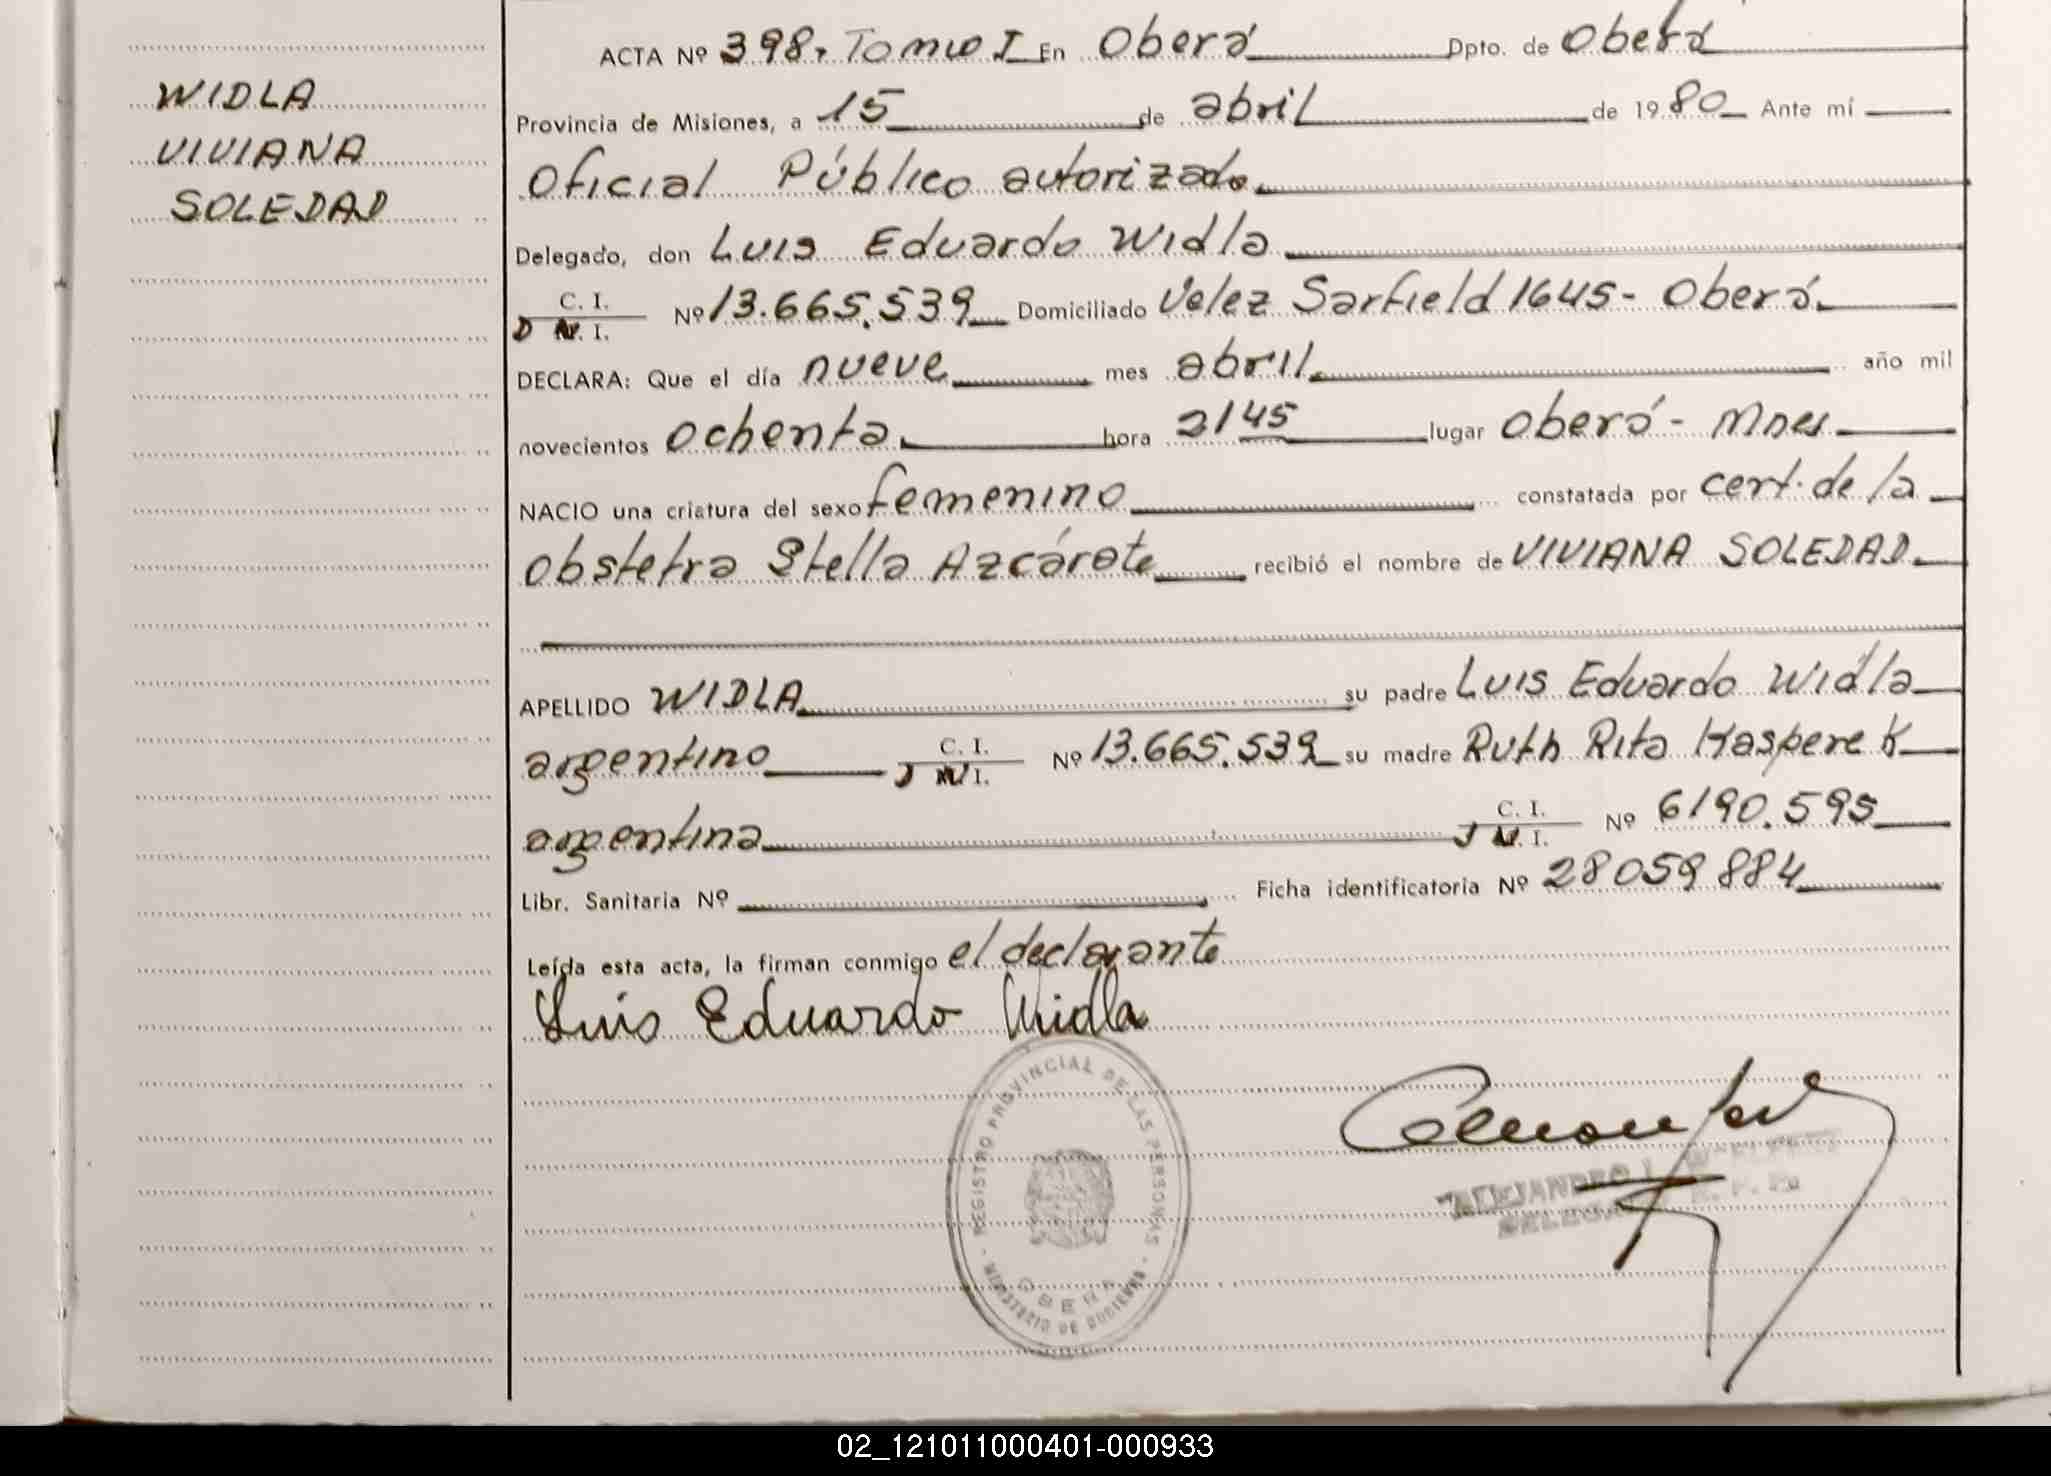 WIDLA
VIVIANA
SOLEDAD
ACTA Nº 398. Tomo I En Oberá Dpto. de Oberá
Provincia de Misiones, a 15 de abril de 1980 Ante mí
Oficial Público autorizado
Delegado, don Luis Eduardo Widla
C. I.
D N. I. Nº 13.665.539 Domiciliado Velez Sarfield 1645- Oberá
DECLARA: Que el día nueve mes abril año mil
novecientos ochenta hora 2145 lugar Oberá - Mnes
NACIO una criatura del sexo femenino constatada por cert. de la
obstetra Stella Azcárate recibió el nombre de VIVIANA SOLEDAD
APELLIDO WIDLA su padre Luis Eduardo Widla
argentino C. I. Nº 13.665.539 su madre Ruth Rita Kasperek
argentina C. I. Nº 6190.595
Libr. Sanitaria Nº Ficha identificatoria Nº 28059884
Leída esta acta, la firman conmigo el declarante
Luis Eduardo Widla
REGISTRO PROVINCIAL DE LAS PERSONAS
OBERA
MINISTERIO DE GOBIERNO
ALEJANDRO
02_121011000401-000933